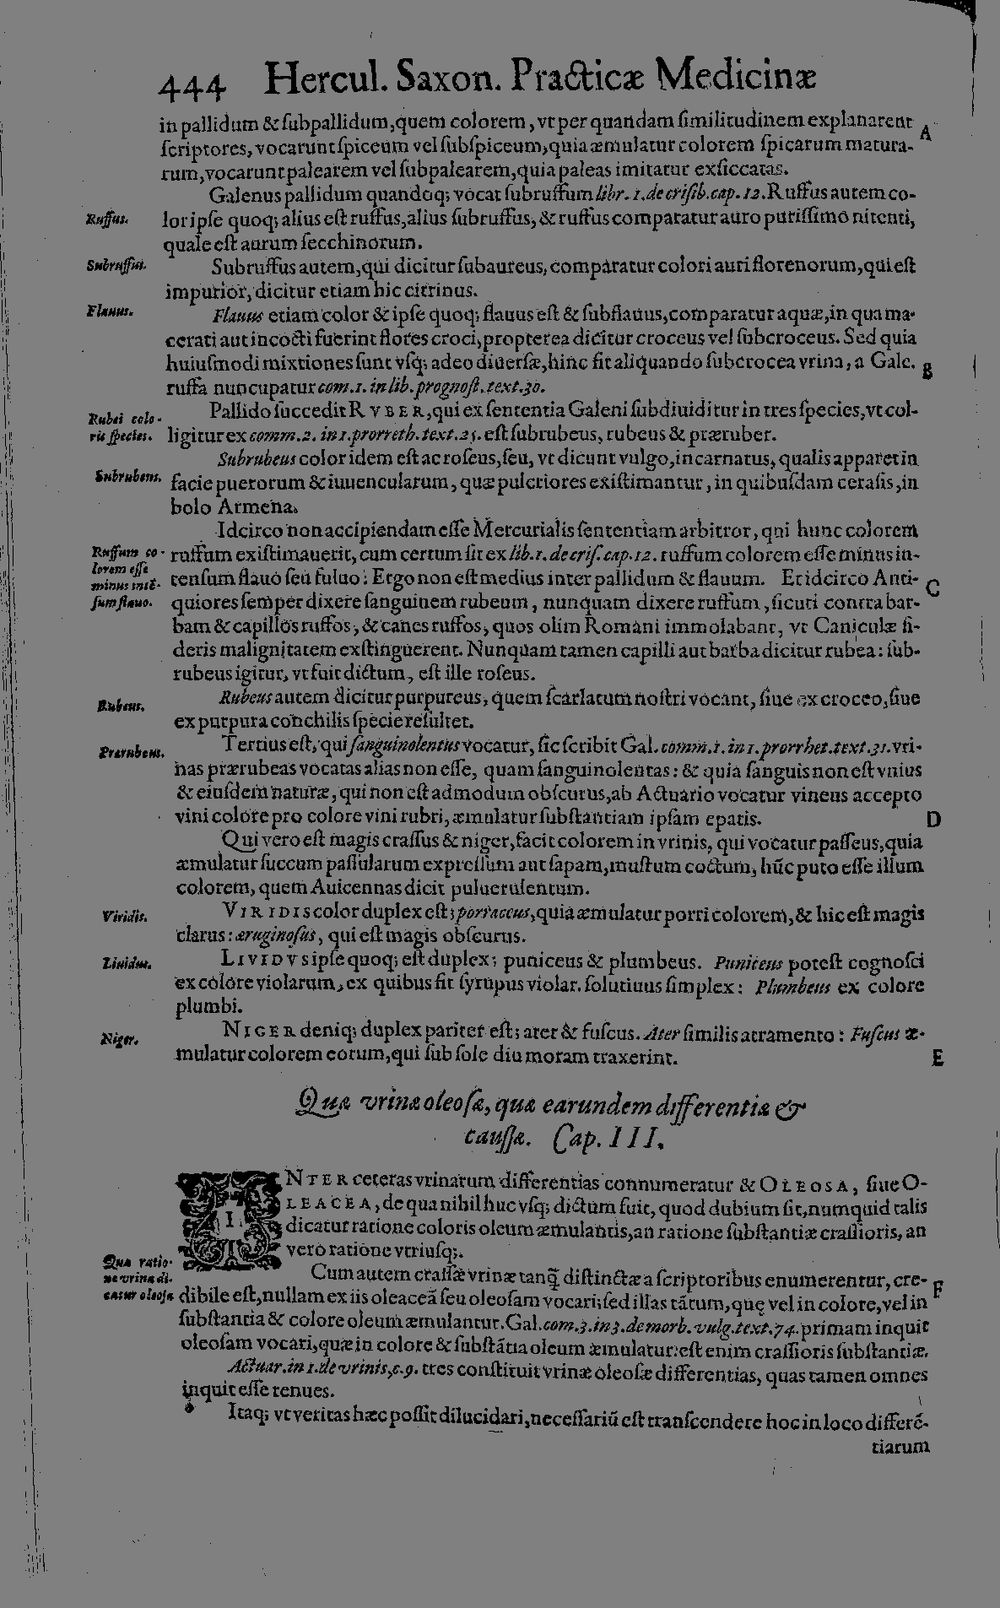 444 Hercul. Saxon. Practicæ Medicinæ
in pallidum & ſubpallidum, quem colorem, vt per quandam ſimilitudinem explanarent
A
ſcriptores, vocarunt ſpiceum vel ſubſpiceum, quia æmulatur colorem ſpicarum matura-
rum, vocarunt palearem vel ſubpalearem, quia paleas imitatur exſiccatas.
Galenus pallidum quandoq; vocat ſubruffum libr. 1. de criſib. cap. 12. Ruffus autem co-
Ruffus.
lor ipſe quoq; alius eſt ruffus, alius ſubruffus, & ruffus comparatur auro puriſſimo nitenti,
quale eſt aurum ſecchinorum.
Subruffus.
Subruffus autem, qui dicitur ſubaureus, comparatur colori auri florenorum, qui eſt
impurior, dicitur etiam hic citrinus.
Flauus.
Flauus etiam color & ipſe quoq; flauus eſt & ſubflauus, comparatur aquæ, in qua ma-
cerati aut incocti fuerint flores croci, propterea dicitur croceus vel ſubcroceus. Sed quia
huiuſmodi mixtiones ſunt vſq; adeo diuerſæ, hinc fit aliquando ſubcrocea vrina, a Gale.
B
ruffa nuncupatur com. 1. in lib. prognoſt. text. 30.
Rubei colo-
ris ſpecies.
Pallido ſuccedit RVBER, qui ex ſententia Galeni ſubdiuiditur in tres ſpecies, vt col-
ligitur ex comm. 2. in 1. prorreth. text. 25. eſt ſubrubeus, rubeus & præruber.
Subrubens.
Subrubeus color idem eſt ac roſeus, ſeu, vt dicunt vulgo, incarnatus, qualis apparet in
facie puerorum & iuuencularum, quæ pulcriores exiſtimantur, in quibuſdam ceraſis, in
bolo Armena.
Idcirco non accipiendam eſſe Mercurialis ſententiam arbitror, qui hunc colorem
Ruffum co-
lorem eſſe
minus inté-
ſum flauo.
ruffum exiſtimauerit, cum certum ſit ex lib. 1. de criſ. cap. 12. ruffum colorem eſſe minus in-
tenſum flauo ſeu fuluo: Ergo non eſt medius inter pallidum & flauum. Et idcirco Anti-
C
quiores ſemper dixere ſanguinem rubeum, nunquam dixere ruffum, ſicuti contra bar-
bam & capillos ruffos, & canes ruffos, quos olim Romani immolabant, vt Caniculæ ſi-
deris malignitatem exſtinguerent. Nunquam tamen capilli aut barba dicitur rubea: ſub-
rubeus igitur, vt fuit dictum, eſt ille roſeus.
Rubeus.
Rubeus autem dicitur purpureus, quem ſcarlatum noſtri vocant, ſiue ex crocco, ſiue
ex purpura conchilis ſpecie reſultet.
Prærubens.
Tertius eſt, qui ſanguinolentus vocatur, ſic ſcribit Gal. comm. 1. in 1. prorrhet. text. 31. vri-
nas prærubeas vocatas alias non eſſe, quam ſanguinolentas: & quia ſanguis non eſt vnius
& eiuſdem naturæ, qui non eſt admodum obſcurus, ab Actuario vocatur vineus accepto
vini colore pro colore vini rubri, æmulatur ſubſtantiam ipſam epatis.
D
Qui vero eſt magis craſſus & niger, facit colorem in vrinis, qui vocatur paſſeus, quia
æmulatur ſuccum paſſularum expreſſum aut ſapam, muſtum coctum, hũc puto eſſe illum
colorem, quem Auicennas dicit puluerulentum.
Viridis.
VIRIDIS color duplex eſt; porraceus, quia æmulatur porri colorem, & hic eſt magis
clarus: æruginoſus, qui eſt magis obſcurus.
Liuidus.
LIVIDVS ipſe quoq; eſt duplex; puniceus & plumbeus. Puniceus poteſt cognoſci
ex colore violarum, ex quibus fit ſyrupus violar. ſolutiuus ſimplex: Plumbeus ex colore
plumbi.
Niger.
NIGER deniq; duplex pariter eſt; ater & fuſcus. Ater ſimilis atramento: Fuſcus æ-
mulatur colorem eorum, qui ſub ſole diu moram traxerint.
E
Quæ vrinæ oleoſæ, quæ earundem differentiæ &
cauſſæ. Cap. III.
INTER ceteras vrinarum differentias connumeratur & OLEOSA, ſiue O-
LEACEA, de qua nihil huc vſq; dictum fuit, quod dubium ſit, numquid talis
dicatur ratione coloris oleum æmulantis, an ratione ſubſtantiæ craſſioris, an
vero ratione vtriuſq;.
Qua ratio-
ne vrina di-
catur oleoſa
Cum autem craſſæ vrinæ tanq̃ diſtinctæ a ſcriptoribus enumerentur, cre-
F
dibile eſt, nullam ex iis oleaceã ſeu oleoſam vocari; ſed illas tãtum, quę vel in colore, vel in
ſubſtantia & colore oleum æmulantur. Gal. com. 3. in 3. de morb. vulg. text. 74. primam inquit
oleoſam vocari, quæ in colore & ſubſtãtia oleum æmulatur: eſt enim craſſioris ſubſtantiæ.
Actuar. in 1. de vrinis, c. 9. tres conſtituit vrinæ oleoſæ differentias, quas tamen omnes
inquit eſſe tenues.
Itaq; vt veritas hæc poſſit dilucidari, neceſſariũ eſt tranſcendere hoc in loco differẽ-
tiarum